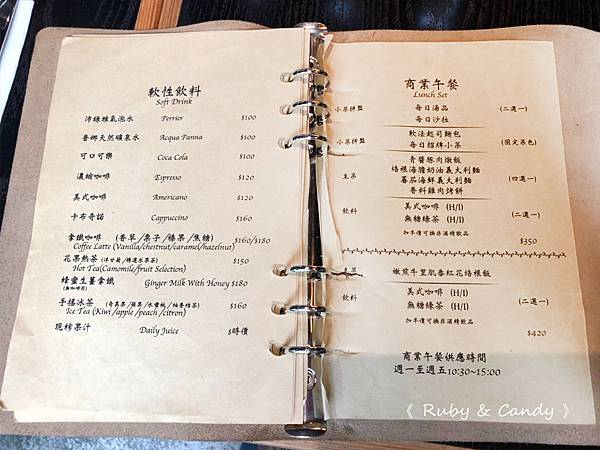 軟性飲料
Soft Drink
沛綠雅氣泡水 Perrier $100
普娜天然礦泉水 Acqua Panna $100
可口可樂 Coca Cola $100
濃縮咖啡 Espresso $120
美式咖啡 Americano $120
卡布奇諾 Cappuccino $160
拿鐵咖啡 (香草/栗子/榛果/焦糖) $160/$180
Coffee Latte (Vanilla/chestnut/caramel/hazelnut)
花果熱茶 (洋甘菊/精選水果茶) $150
Hot Tea(Camomile/fruit Selection)
蜂蜜生薑拿鐵 Ginger Milk With Honey $180
(無咖啡因)
手搖冰茶 (奇異果/蘋果/水蜜桃/柚香桔茶) $160
Ice Tea (Kiwi/apple/peach/citron)
現榨果汁 Daily Juice $時價
商業午餐
Lunch Set
小茶拼盤 每日湯品 (二選一)
每日沙拉
小茶拼盤 軟法起司麵包 (固定菜色)
每日招牌小菜
主菜 青醬豚肉燉飯 (四選一)
培根海膽奶油義大利麵
蕃茄海鮮義大利麵
香料雞肉烤餅
飲料 美式咖啡 (H/I) (二選一)
無糖綠茶 (H/I)
加半價可換非酒精飲品
$350
主菜 嫩煎牛里肌番紅花培根飯
飲料 美式咖啡 (H/I) (二選一)
無糖綠茶 (H/I)
加半價可換非酒精飲品
$420
商業午餐供應時間
週一至週五10:30~15:00
《 Ruby & Candy 》